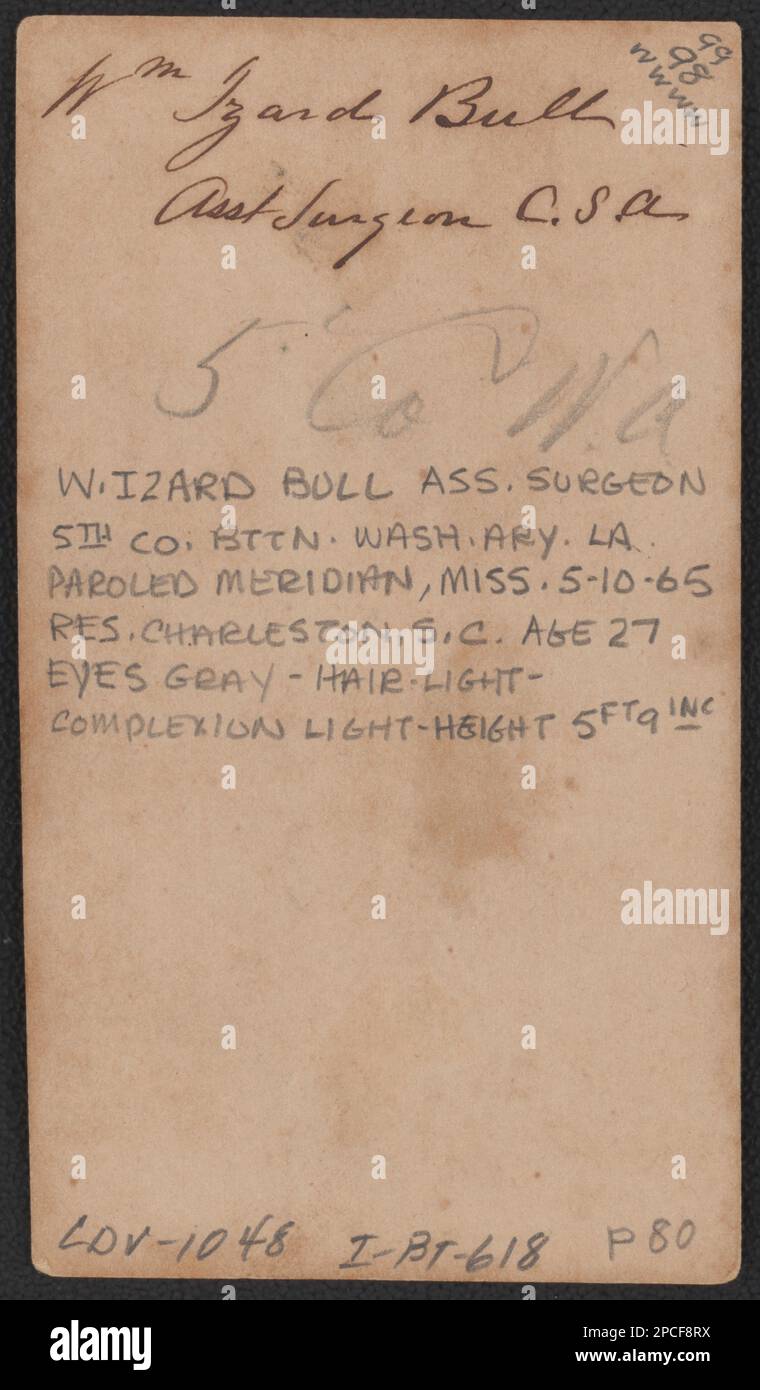 Wm Izard Bull
99
98
WWWW
Asst Surgeon C.S.A
5 Co W.A
W. IZARD BULL ASS. SURGEON
5TH CO. BTTN. WASH. ARY. LA.
PAROLED MERIDIAN, MISS. 5-10-65
RES. CHARLESTON, S.C. AGE 27
EYES GRAY - HAIR-LIGHT-
COMPLEXION LIGHT-HEIGHT 5FT9INC
CDV-1048 I-BT-618 P80
alamy
alamy
alamy
alamy
Image ID: 2PCF8RX
www.alamy.com